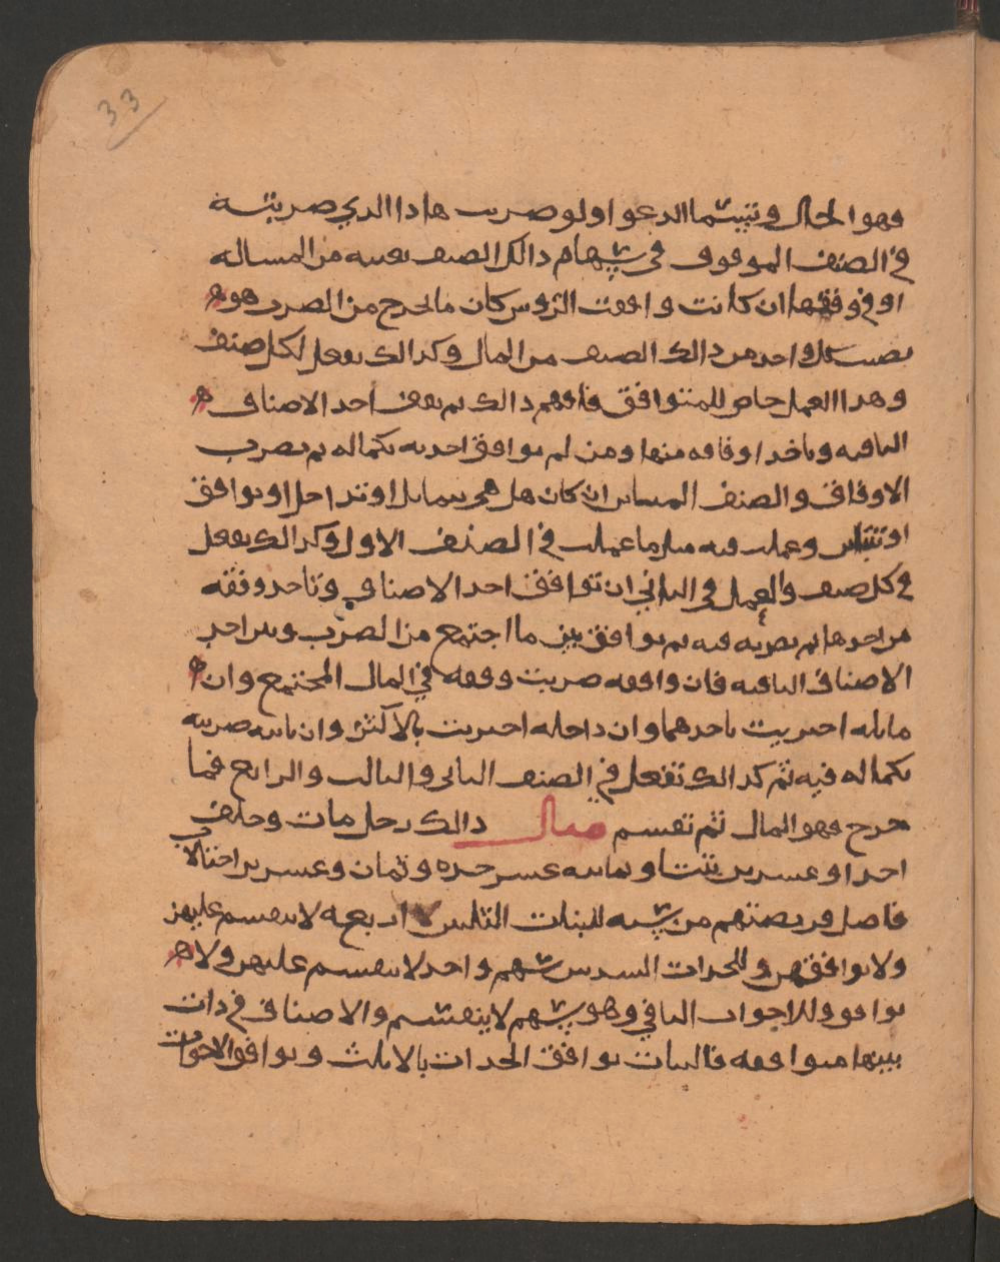 33
فهو الحال وتنبيتما الدعوا ولو ضربت هاذا الدي ضربته
في الصنف الموقوف في سهام دالك الصنف بعينه من المساله
او في وفقها ان كانت وافقت الروس كان ما خرج من الضرب هو
نصيب كل واحد من دالك الصنف من المال وكدالك تفعل لكل صنف
وهدا العمل خاص للمتوافق فافهم دالك ثم تقف احد الاصناف
الباقيه وتاخد اوفاقه منها ومن لم يوافق اخدته بكماله ثم تضرب
الاوفاق والصنف المباين ان كان هل هي تتماثل او تتداخل او توافق
او تتباين وعملت فيه مثل ما عملت في الصنف الاول وكدالك تفعل
في كل صنف والعمل في الثاني ان توافق احد الاصناف وتاخد وفقه
من احدها ثم تضربه فيه ثم توافق بين ما اجتمع من الضرب وبين احد
الاصناف الباقيه فان وافقه ضربت وفقه في المال المجتمع وان
ماثله اجتزيت باحدهما وان داخله اجتزيت بالاكثر وان باينه ضربته
بكماله فيه ثم كدالك تفعل في الصنف الثاني والثالث والرابع فما
خرج فهو المال ثم تقسم مثال دالك رجل مات وخلف
احدا وعشرين بنتا وثمانيه عشر جده وثمان وعشرين اختا لاب
فاصل فريضتهم من سته للبنات الثلثين اربعه لا تنقسم عليهن
ولا توافقهن وللجدات السدس سهم واحد لا ينقسم عليهن ولا
يوافق وللاخوات الباقي وهو سهم لا ينقسم والاصناف في دات
بينها متوافقه فالبنات توافق الجدات بالاثلاث وتوافق الاخوات